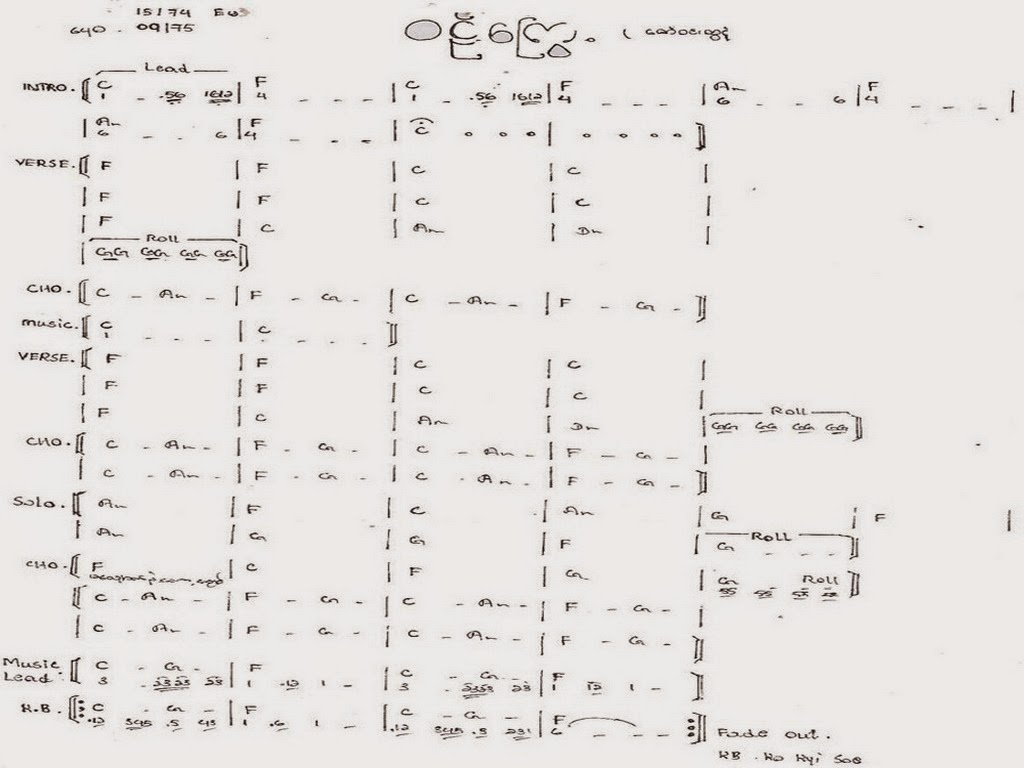 15/74 Em
09/75
Lead
INTRO. [ C 1 - .56 1612 | F 4 - - - | C 1 - .56 1612 | F 4 - - - | Am 6 - - 6 | F 4 - - - |
| Am 6 - - 6 | F 4 - - - | C o o o | o o o o ]
VERSE. [ F | F | C | C |
| F | F | C | C |
| F | C | Am | Dm |
Roll
| GG GG GG GG ]
CHO. [ C - Am - | F - G - | C - Am - | F - G - ]
music. [ C 1 - - - | C - - - - ]
VERSE. [ F | F | C | C |
| F | F | C | C |
Roll
| F | C | Am | Dm | GG GG GG GG ]
CHO. [ C - Am - | F - G - | C - Am - | F - G - |
| C - Am - | F - G - | C - Am - | F - G - ]
Solo. [ Am | F | C | Am | G | F |
Roll
| Am | G | G | F | G - - - ]
CHO. [ F | C | F | G | G Roll 55 55 55 55 ]
[ C - Am - | F - G - | C - Am - | F - G - |
| C - Am - | F - G - | C - Am - | F - G - ]
Music Lead: [ C - G - 3 . 5353 53 | F 1 .12 1 - | C - G - 3 5353 23 | F 1 12 1 - ]
K.B. [: C - G - .12 345 .5 43 | F 1 .6 1 - | C - G - .12 345 .5 231 | F 6 - - - :]
Fade out.
KB . Ko Kyi Soe